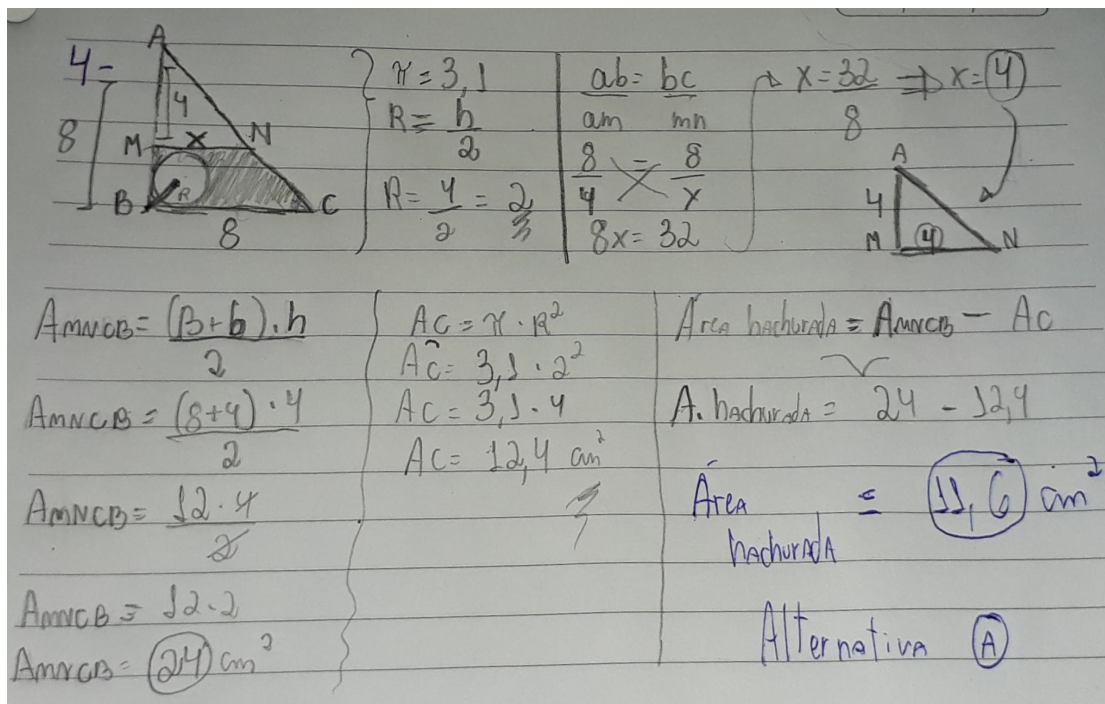 4-
A
4
8
M x N
B R C
8
π = 3,1
R = h/2
R = 4/2 = 2
ab = bc
am mn
8/4 = 8/x
8x = 32
x = 32/8 ⇒ x = 4
A
4
M 4 N
AMNCB = (B+b).h
2
AMNCB = (8+4).4
2
AMNCB = 12.4
2
AMNCB = 12.2
AMNCB = 24 cm²
AC = π.R²
AC = 3,1.2²
AC = 3,1.4
AC = 12,4 cm²
Área hachurada = AMNCB - AC
A. hachurada = 24 - 12,4
Área hachurada = 11,6 cm²
Alternativa A